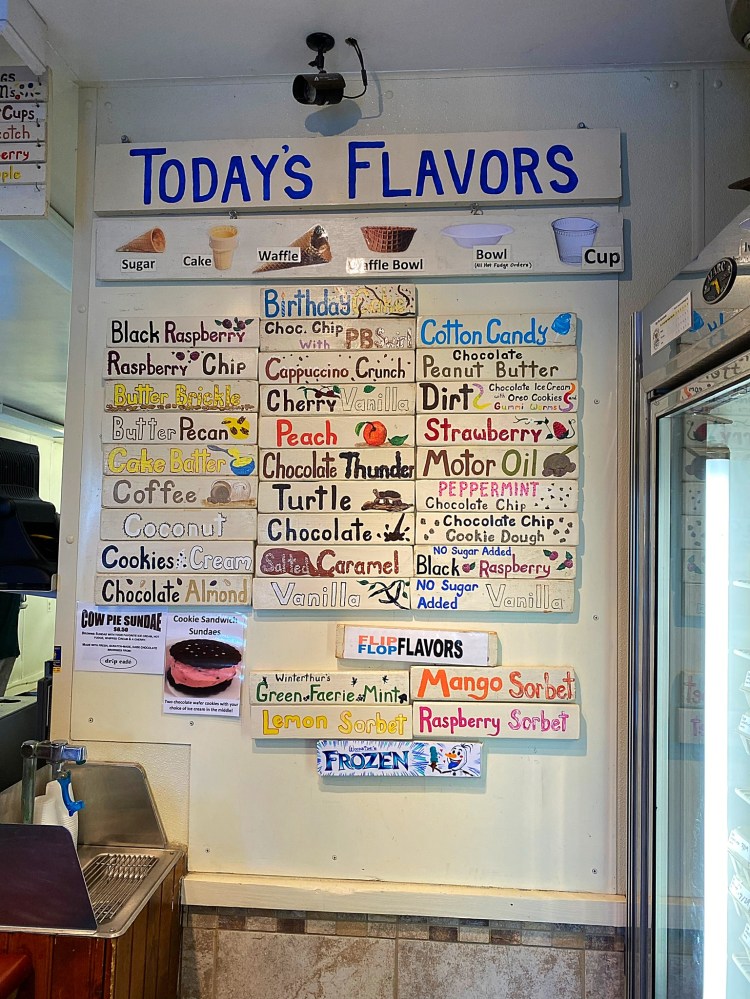 Cups
TODAY'S FLAVORS
Sugar
Cake
Waffle
affle Bowl
Bowl
(All Hot Fudge Orders)
Cup
Black Raspberry
Raspberry Chip
Butter Brickle
Butter Pecan
Cake Batter
Coffee
Coconut
Cookies & Cream
Chocolate Almond
Birthday Cake
Choc. Chip
With PB Swirl
Cappuccino Crunch
Cherry Vanilla
Peach
Chocolate Thunder
Turtle
Chocolate
Salted Caramel
Vanilla
Cotton Candy
Chocolate
Peanut Butter
Dirt
Chocolate Ice Cream
with Oreo Cookies &
Gummi Worms
Strawberry
Motor Oil
PEPPERMINT
Chocolate Chip
Chocolate Chip
Cookie Dough
NO Sugar Added
Black Raspberry
NO Sugar
Added Vanilla
COW PIE SUNDAE
drip café
Cookie Sandwich
Sundaes
Two chocolate wafer cookies with your
choice of ice cream in the middle!
FLIP
FLOP FLAVORS
Winterthur's
Green Faerie Mint
Lemon Sorbet
Mango Sorbet
Raspberry Sorbet
FROZEN